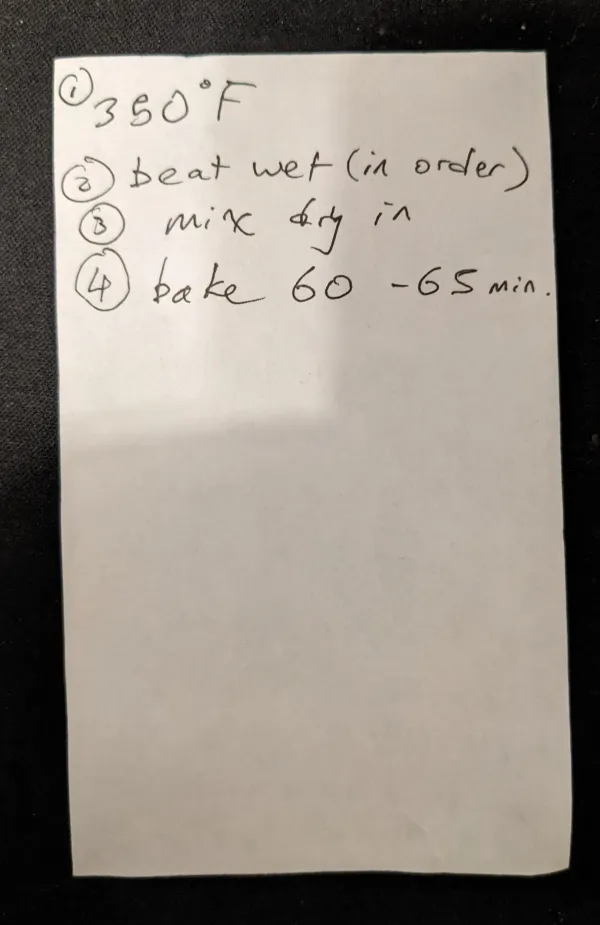 ① 350°F
② beat wet (in order)
③ mix dry in
④ bake 60 - 65 min.